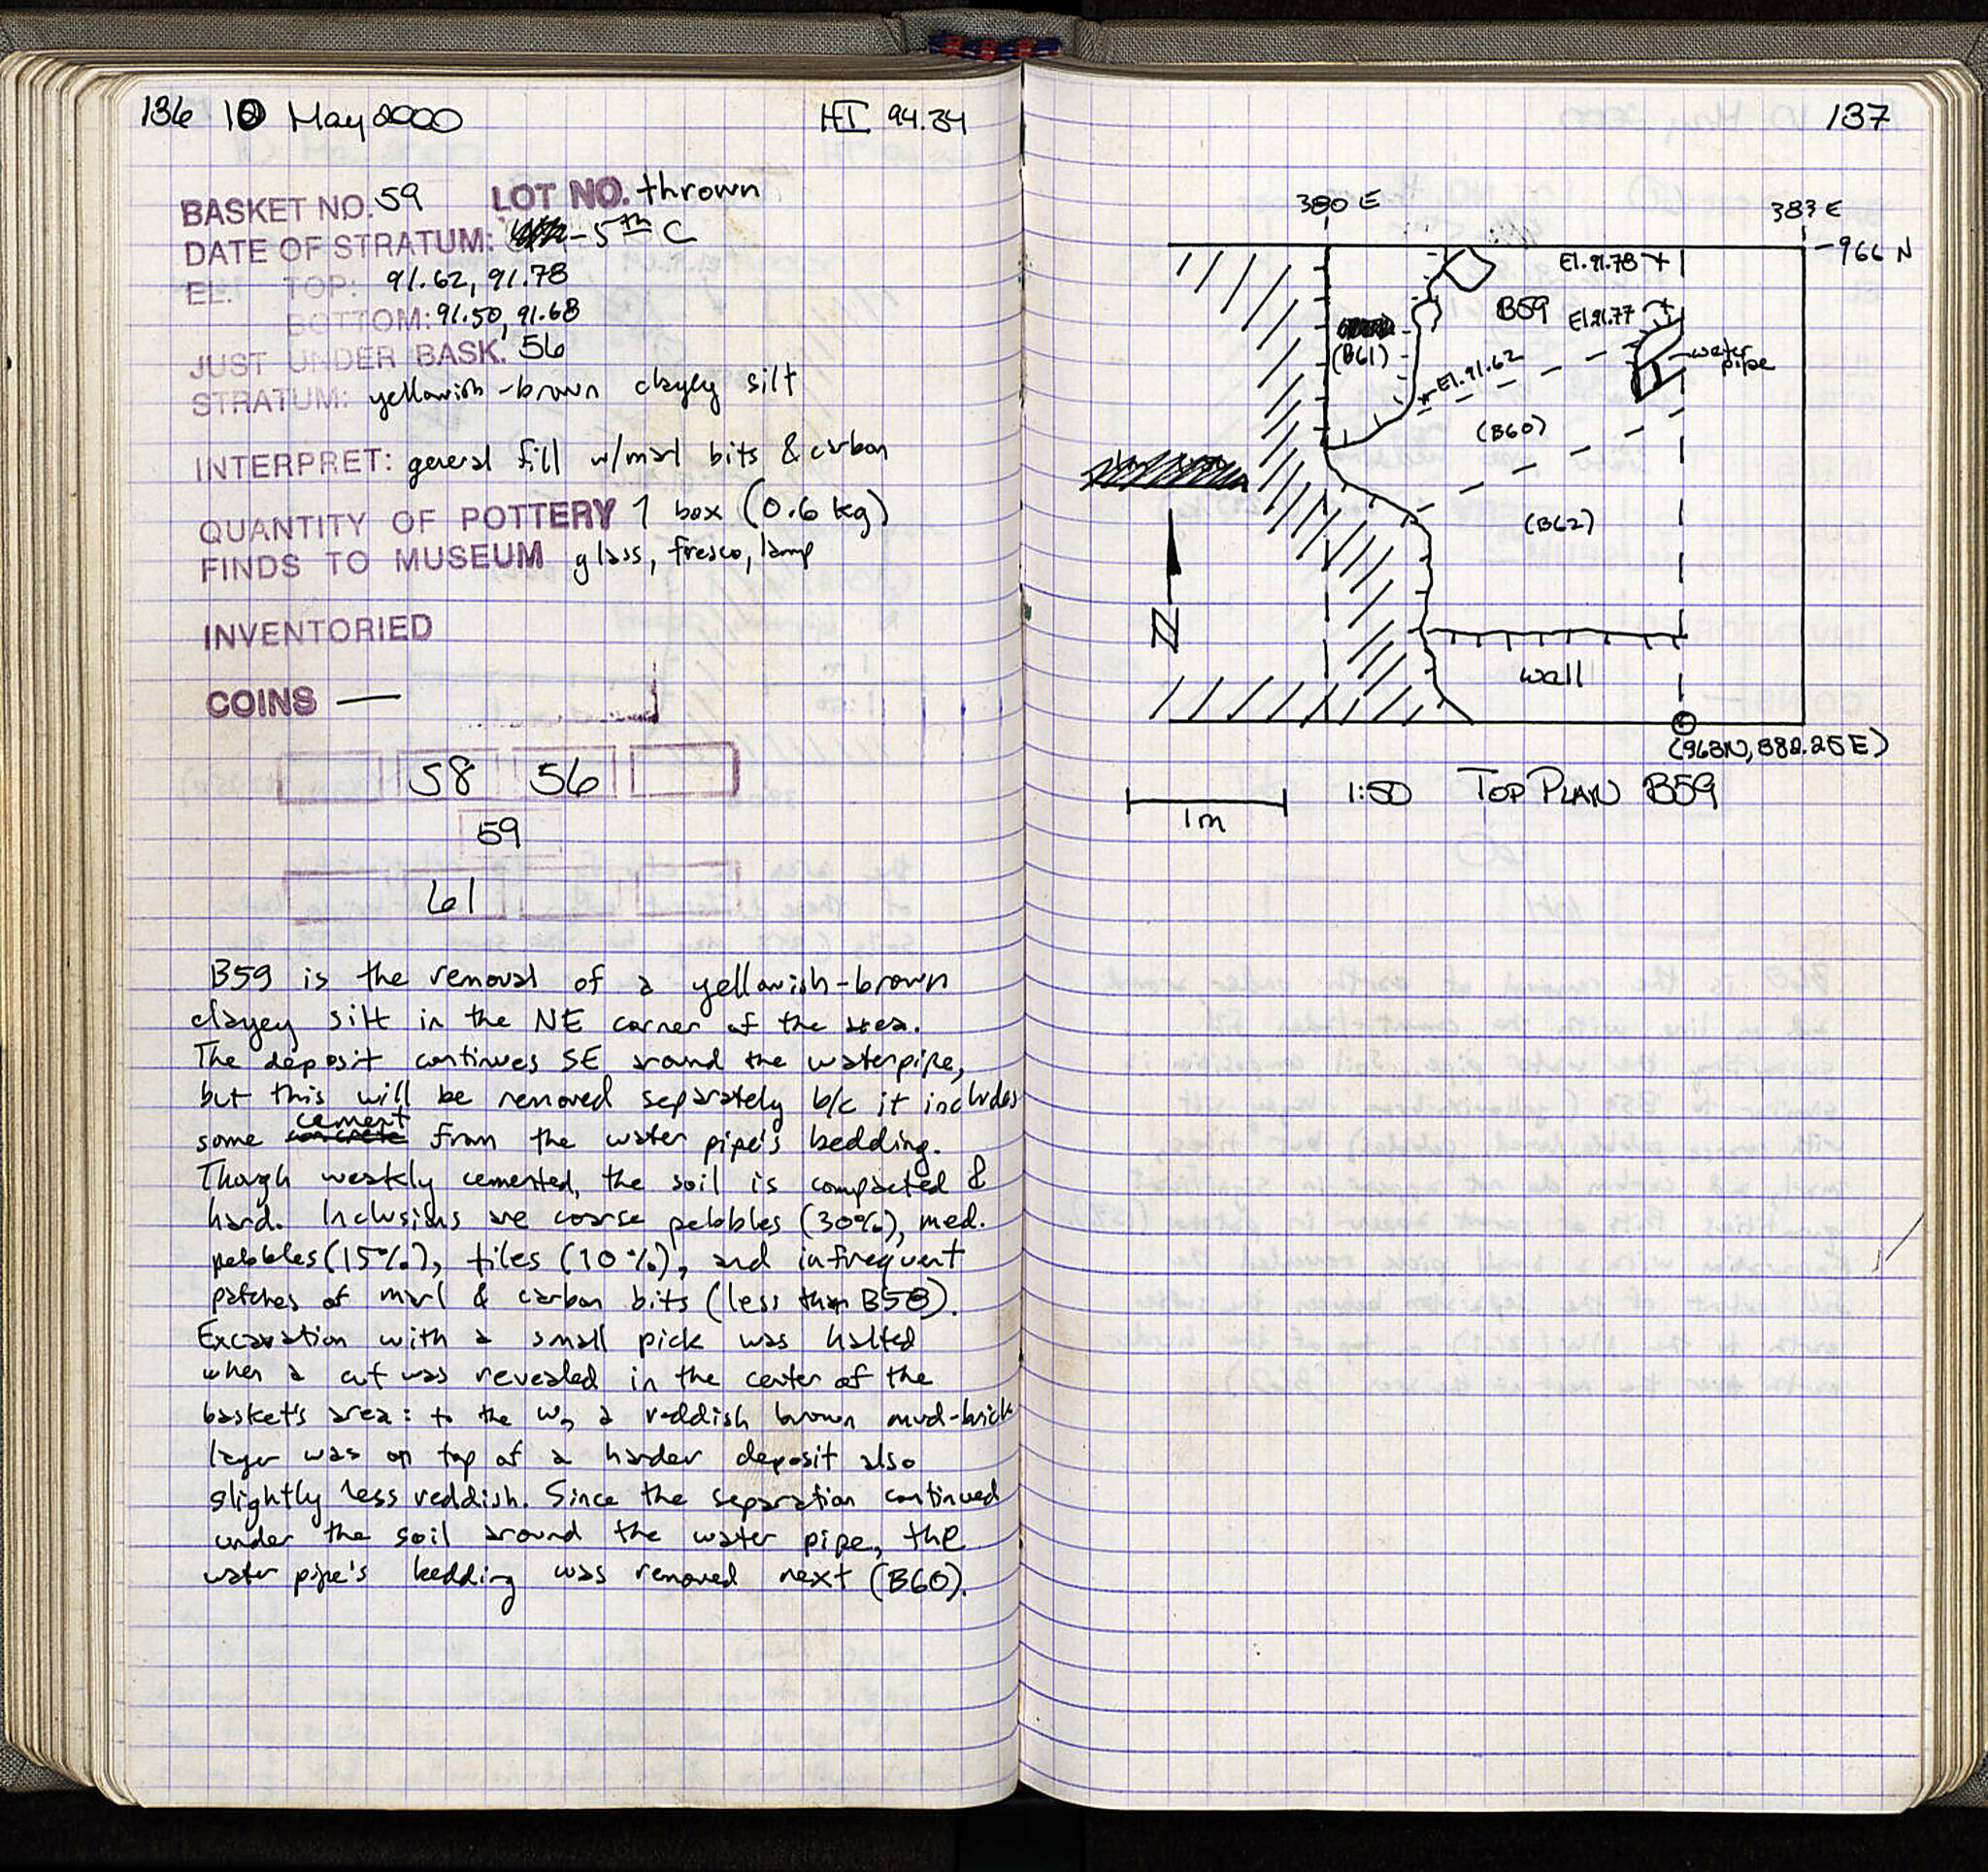 136 10 May 2000 HI 94.34
BASKET NO. 59 LOT NO. thrown
DATE OF STRATUM: - 5th C
EL. TOP: 91.62, 91.78
BOTTOM: 91.50, 91.68
JUST UNDER BASK. 56
STRATUM: yellowish-brown clayey silt
INTERPRET: general fill w/marl bits & carbon
QUANTITY OF POTTERY 1 box (0.6 kg)
FINDS TO MUSEUM glass, fresco, lamp
INVENTORIED
COINS —
58 56
59
61
B59 is the removal of a yellowish-brown
clayey silt in the NE corner of the area.
The deposit continues SE around the waterpipe,
but this will be removed separately b/c it includes
some concrete cement from the water pipe's bedding.
Though weakly cemented, the soil is compacted &
hard. Inclusions are coarse pebbles (30%), med.
pebbles (15%), tiles (10%), and infrequent
patches of marl & carbon bits (less than B58).
Excavation with a small pick was halted
when a cut was revealed in the center of the
basket's area: to the W, a reddish brown mud-brick
layer was on top of a harder deposit also
slightly less reddish. Since the separation continued
under the soil around the water pipe, the
water pipe's bedding was removed next (B60).
137
380 E 383 E
966 N
El. 91.78
B59 El. 91.77
(B61)
water
pipe
El. 91.62
(B60)
(B62)
N
wall
(963N, 382.25E)
1m
1:50 TOP PLAN B59